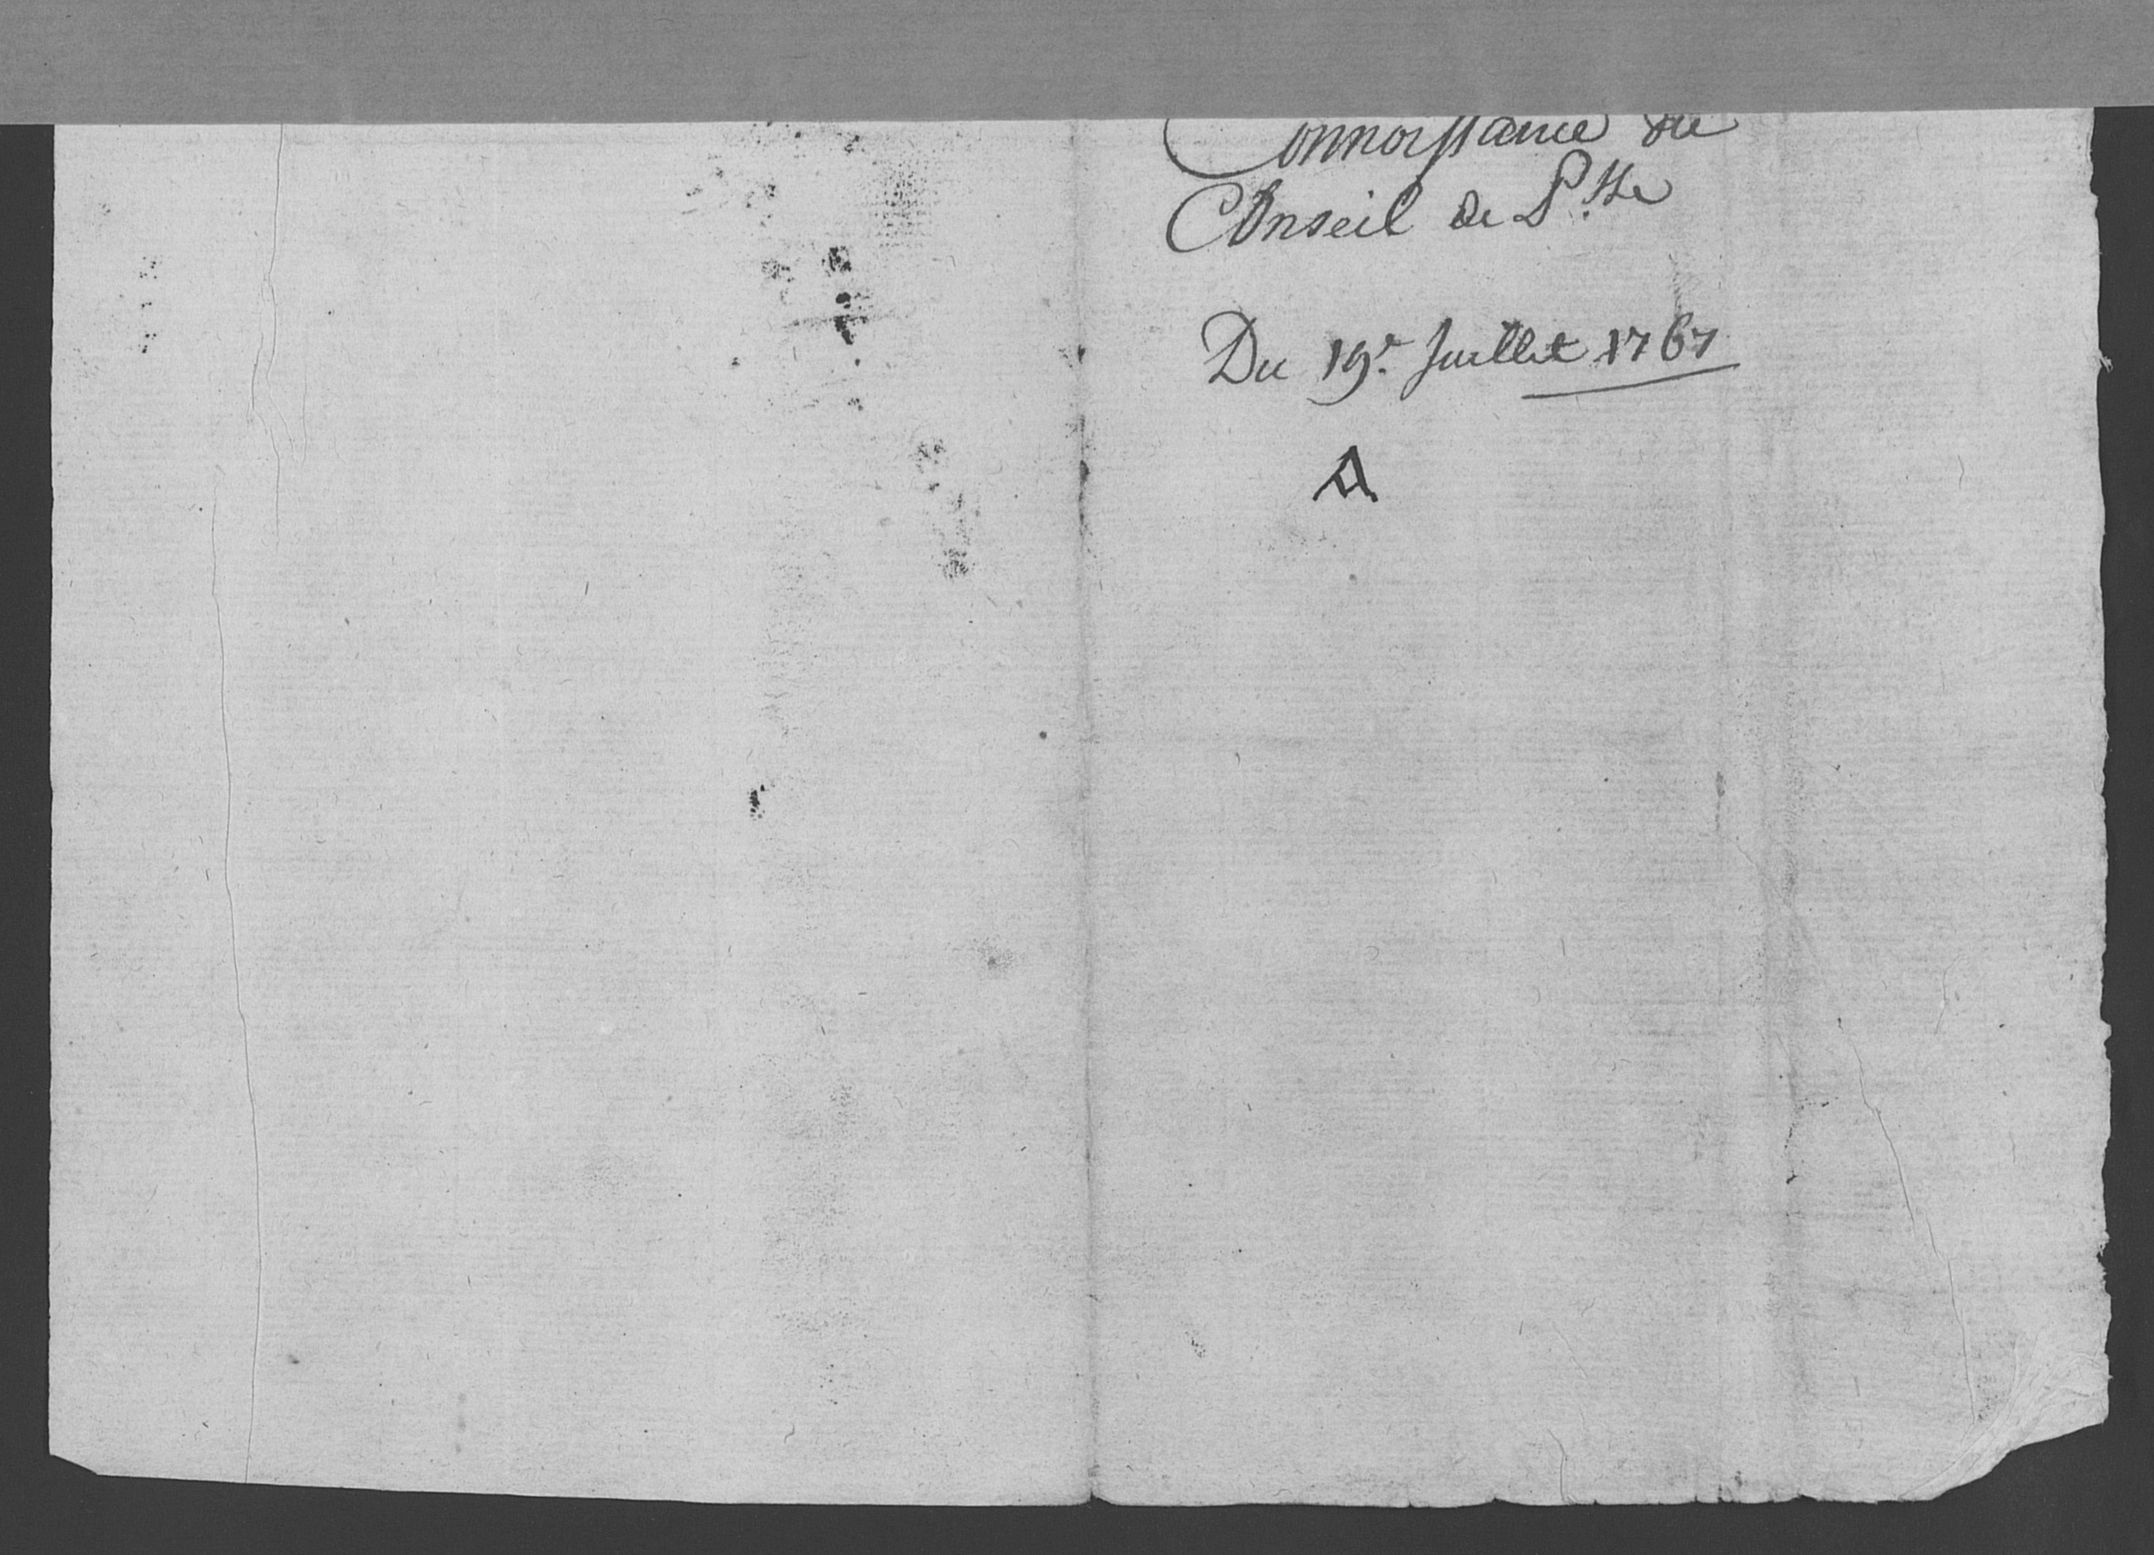 Connoissance du
Conseil de P.tte
Du 19.e Juillet 1767
A